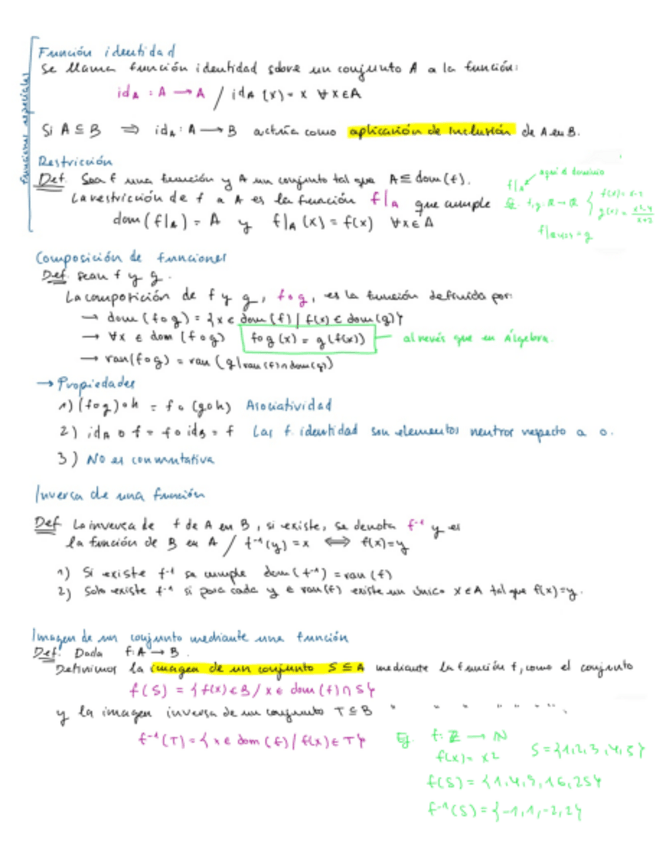 Funciones especiales
Función identidad
Se llama función identidad sobre un conjunto A a la función:
id_A : A → A / id_A (x) = x ∀x∈A
Si A ⊆ B ⇒ id_A : A → B actúa como aplicación de inclusión de A en B.
Restricción
Def. Sea f una función y A un conjunto tal que A ⊆ dom(f).
La restricción de f a A es la función f|_A que cumple
dom(f|_A) = A y f|_A (x) = f(x) ∀x∈A
f|_A aquí el dominio
f|
Composición de funciones
Def. Sean f y g.
La composición de f y g, f∘g, es la función definida por:
→ dom(f∘g) = {x ∈ dom(f) / f(x) ∈ dom(g)}
→ ∀x ∈ dom(f∘g) f∘g(x) = g(f(x)) al revés que en Álgebra.
→ ran(f∘g) = ran(g|_ran(f)∩dom(g))
→ Propiedades
1) (f∘g)∘h = f∘(g∘h) Asociatividad
2) id_A ∘ f = f ∘ id_B = f Las f. identidad son elementos neutros respecto a ∘.
3) No es conmutativa
Inversa de una función
Def. La inversa de f de A en B, si existe, se denota f⁻¹ y es
la función de B en A / f⁻¹(y) = x ⟺ f(x) = y
1) Si existe f⁻¹ se cumple dom(f⁻¹) = ran(f)
2) Solo existe f⁻¹ si para cada y ∈ ran(f) existe un único x∈A tal que f(x)=y.
Imagen de un conjunto mediante una función
Def. Dada f: A → B.
Definimos la imagen de un conjunto S ⊆ A mediante la función f, como el conjunto
f(S) = {f(x) ∈ B / x ∈ dom(f) ∩ S}
y la imagen inversa de un conjunto T ⊆ B " " " " " ".
f⁻¹(T) = {x ∈ dom(f) / f(x) ∈ T}
Ej. f: ℤ → ℕ
f(x) = x² S = {1,2,3,4,5}
f(S) = {1,4,9,16,25}
f⁻¹(S) = {-1,1,-2,2}